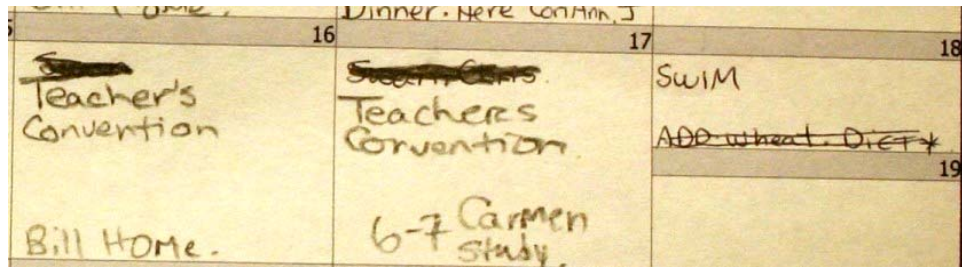 Dinner. Here
16
Teacher's
Convention
Bill Home.
17
Teachers
Convention
6-7 Carmen
Study.
18
SWIM
ADD wheat. DIET*
19